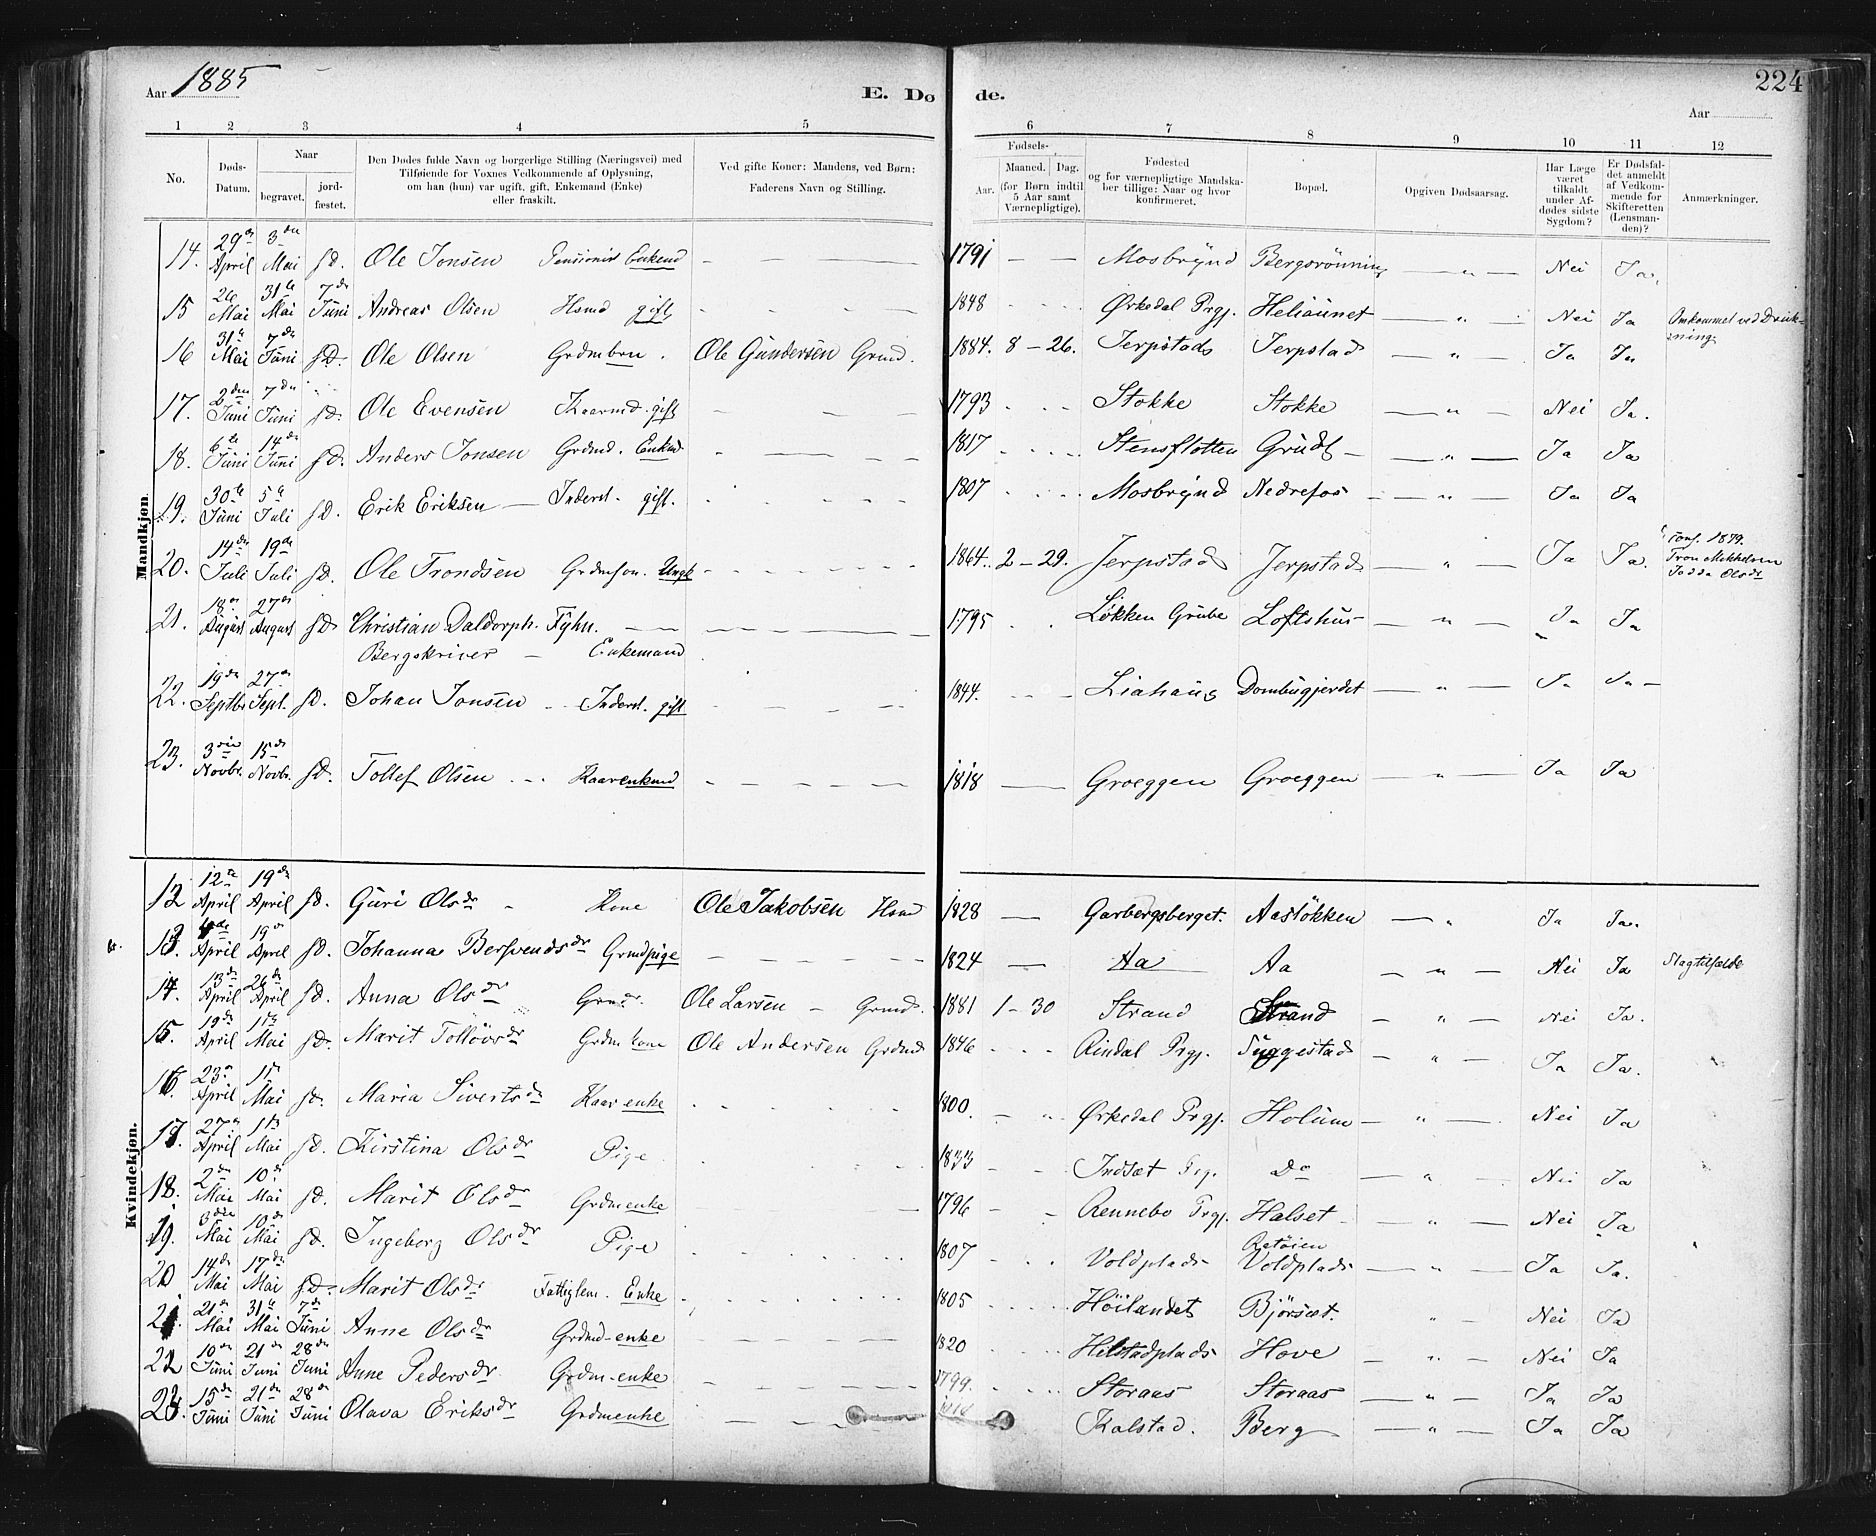 Aar 1885
E. Dø de.
224
Aar
1 2 3 4 5 6 7 8 9 10 11 12
No.
Døds-Datum.
Naar
begravet.
jord-fæstet.
Den Dødes fulde Navn og borgerlige Stilling (Næringsvei) med
Tilføiende for Voxnes Vedkommende af Oplysning,
om han (hun) var ugift, gift, Enkemand (Enke)
eller fraskilt.
Ved gifte Koner: Mandens, ved Børn:
Faderens Navn og Stilling.
Fødsels-
Aar.
Maaned. Dag.
(for Børn indtil
5 Aar samt
Værnepligtige).
Fødested
og for værnepligtige Mandska-
ber tillige: Naar og hvor
konfirmeret.
Bopæl.
Opgiven Dødsaarsag.
Har Læge
været
tilkaldt
under Af-
dødes sidste
Sygdom?
Er Dødsfal-
det anmeldt
af Vedkom-
mende for
Skifteretten
(Lensman-
den)?
Anmærkninger.
Mandkjøn
14. 29 April 3 Mai sD. Ole Jonsen Pensionist Enkemd 1791 Mosbrynd Bergsrönning Nei Ja.
15 26 Mai 31 Mai 7 Juni Andreas Olsen Hsmd gift 1848 Ørkedal Prgj. Heliaunet " Nei Ja Omkommet ved Drukning
16 31 Mai 7 Juni sD. Ole Olsen Grdmbrn. Ole Gundersen Grmd. 1884. 8 - 26. Jerpstads Jerpstad " Ja Ja
17. 2den Juni 7 Juni sD. Ole Evensen Kaarmd. gift 1793 Stokke Stokke " Nei Ja.
18. 6te Juni 14 Juni sD. Anders Jonsen Grdmd. Enkmd 1817 Stensflotten Grudt " Ja Ja
19. 30te Juni 5te Juli sD. Erik Eriksen Inderst. gift. 1807 Mosbrynd Nedrefos " Ja Ja
20. 14de Juli 19de Juli sD. Ole Trondsen Grdmsøn. Ungk 1864. 2 - 29. Jerpstad Jerpstad " Ja Ja. conf. 1879. Tron Mikkelsen Olsdr
21. 18 August 27 August sD Christian Daldorph. Fyhn. 1795 Løkken Grube Loftshus " Ja Ja
Bergskriver - Enkemand
22. 19de Septbr 27 Sept. sD. Johan Jonsen Inderst. gift 1844. Liahaug Dombugjerdet " Ja Ja
23. 3die Novbr. 15de Novbr. sD. Tollef Olsen Kaarenkmd 1818 Groeggen Groeggen " Ja Ja
Kvindekjøn.
12 12te April 19de April sD. Guri Olsdr Kone Ole Jakobsen Hsmd 1828 Garbergsberget. Aasløkken " Ja Ja.
13. April 19 April sD. Johanna Bersvendsdr Grmdpige 1824 Aa Aa " Nei Ja Slagtilfælde
14. 13de April 26de April sD. Anna Olsdr Ole Larsen - Grmd. 1881 1 - 30 Strand Strand " Nei Ja.
15. 19de April 11te Mai sD. Marit Tollövsdr Grdm kone Ole Andersen Grdmd 1846 Rindal Prgj. Tuggestad " Ja Ja.
16. 23 April 11 Mai sD. Maria Sivertsdr Kaar enke 1800. Ørkedal Prgj. Holum " Nei Ja
17. 27 April 11 Mai sD. Kirstina Olsdr Pige 1833 Indset Prg. Do " Nei Ja
18. 2den Mai 10 Mai sD. Marit Olsdr Grdmenke 1796 Rennebo Prgj. Halset " Nei Ja
19. 3die Mai 10de Mai sD. Ingeborg Olsdr Pige 1807 Voldplads Voldplads " Ja Ja.
20 14de Mai 17de Mai sD. Marit Olsdr Fattiglem. Enke 1805 Höilandet Björset. " Nei Ja
21. 21 Mai 31 Mai 7de Juni Anne Olsdr Grdmd-enke 1820 Helstadplads Hove " Nei Ja
22 10de Juni 21 Juni 28de Juni Anne Pedersdr Grdm-enke 1799. Storaas Storaas " Ja Ja
23. 15de Juni 21de Juni 28 Juni Olava Eriksdr Grdmenke Kalstad. Berg " Ja Ja